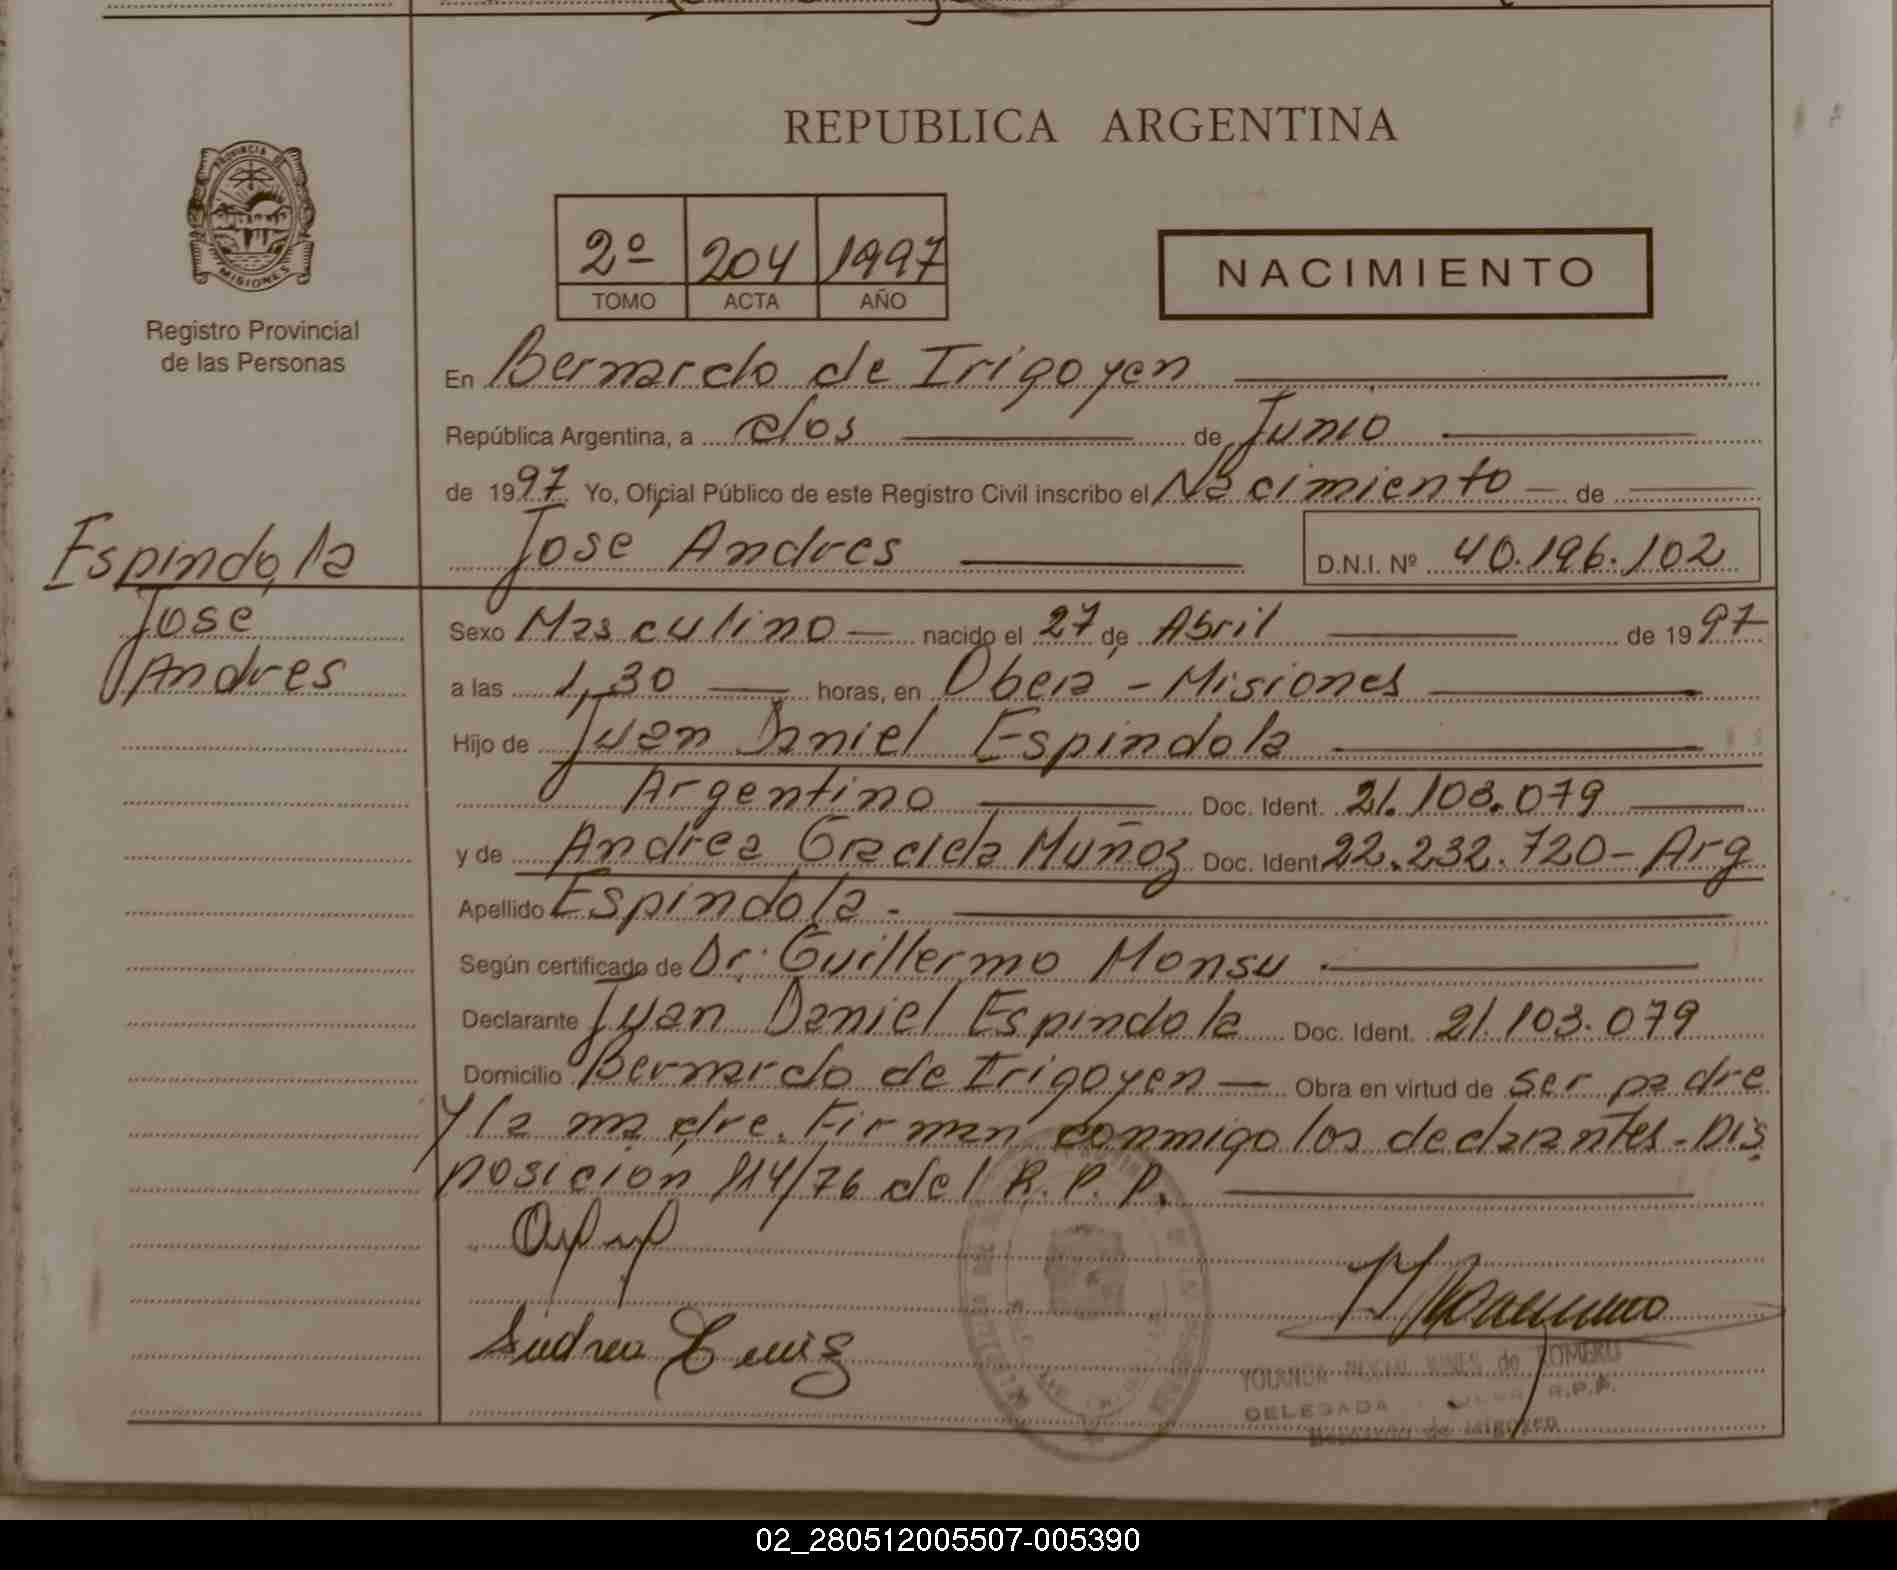 REPUBLICA ARGENTINA
PROVINCIA DE
MISIONES
Registro Provincial
de las Personas
2º 204 1997
TOMO ACTA AÑO
NACIMIENTO
En Bernardo de Irigoyen
República Argentina, a dos de Junio
de 1997 Yo, Oficial Público de este Registro Civil inscribo el Nacimiento de
Jose Andres D.N.I. Nº 40.196.102
Espindola
Jose
Andres
Sexo Masculino nacido el 27 de Abril de 1997
a las 1,30 horas, en Oberá - Misiones
Hijo de Juan Daniel Espindola
Argentino Doc. Ident. 21.103.079
y de Andrea Graciela Muñoz Doc. Ident. 22.232.720 - Arg
Apellido Espindola -
Según certificado de Dr. Guillermo Monsu
Declarante Juan Daniel Espindola Doc. Ident. 21.103.079
Domicilio Bernardo de Irigoyen Obra en virtud de ser padre
y la madre. Firman conmigo los declarantes - Dis
posición 114/76 del R.P.P.
YOLANDA de ROMERO
DELEGADA R.P.P.
Bernardo de Irigoyen
02_280512005507-005390